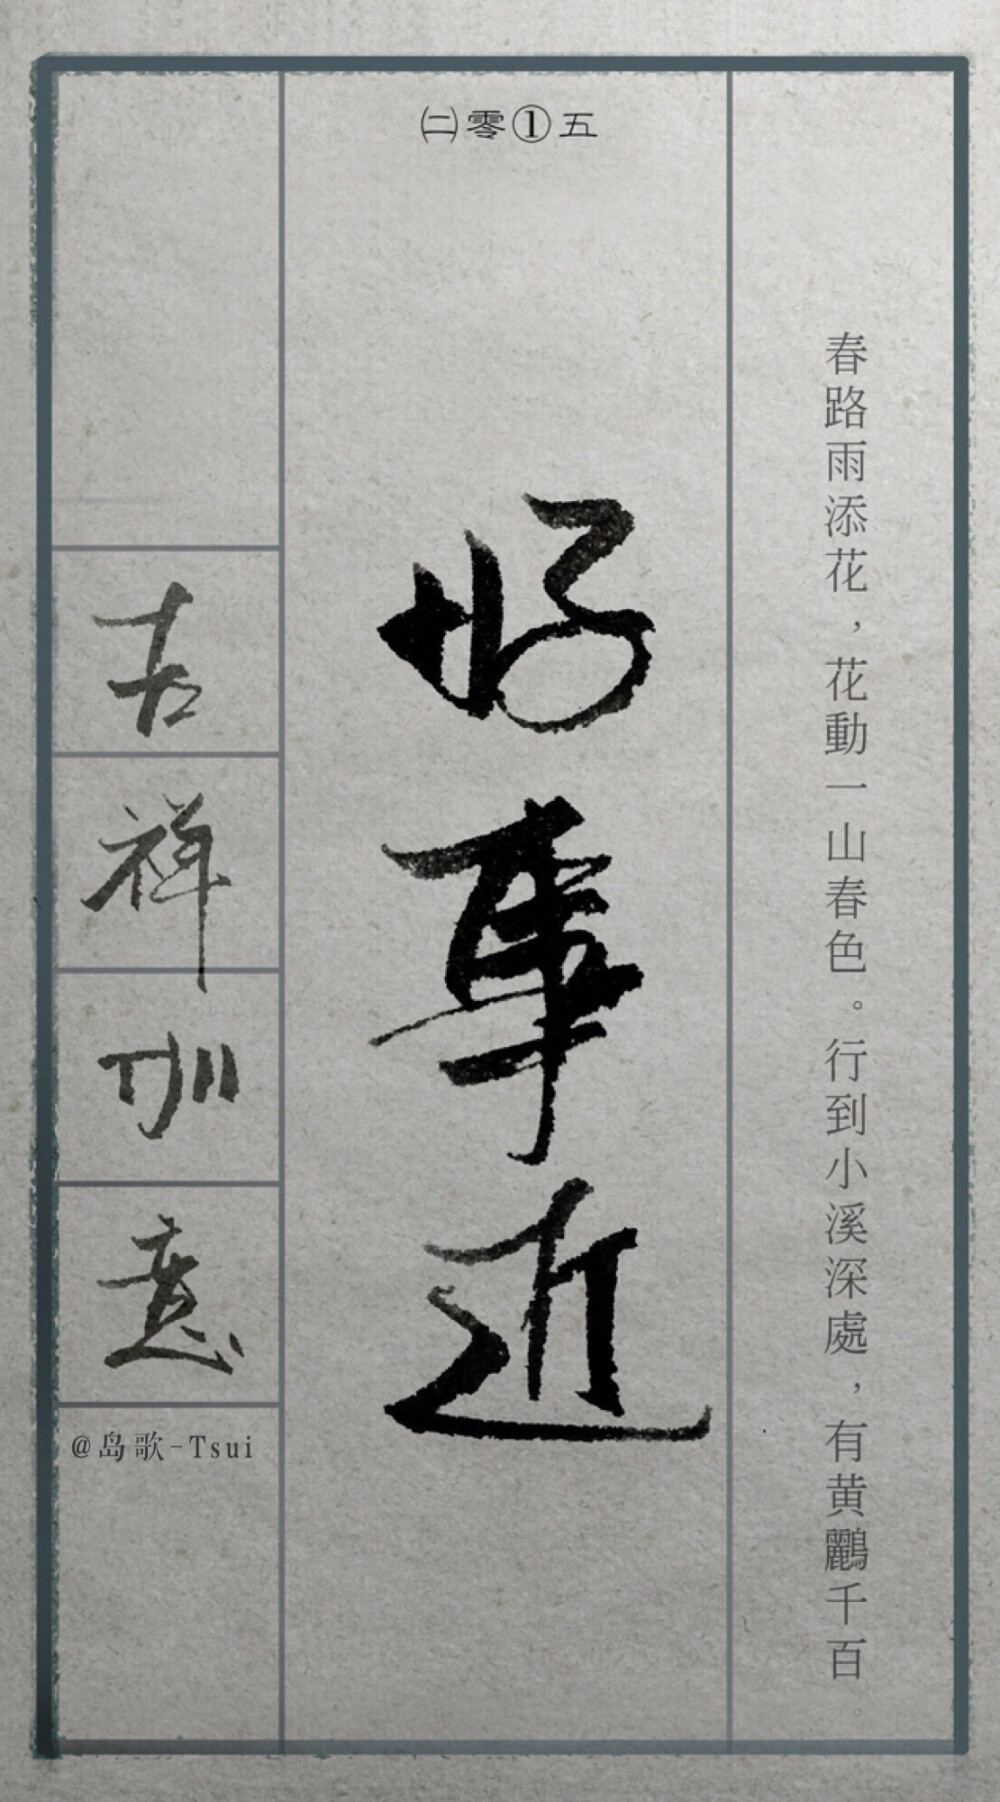 ㈡零①五
春路雨添花，花動一山春色。行到小溪深處，有黄鸝千百。
好事近
吉祥如意
@岛歌-Tsui